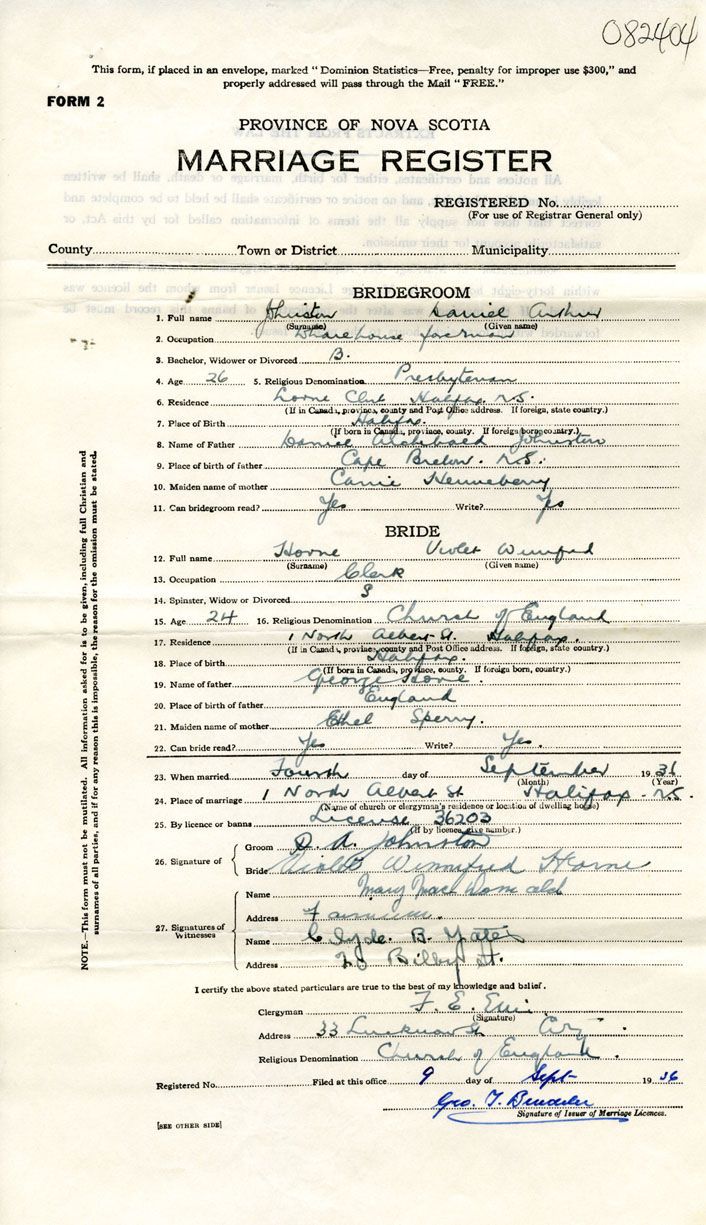 082404
This form, if placed in an envelope, marked "Dominion Statistics—Free, penalty for improper use $300," and
properly addressed will pass through the Mail "FREE."
FORM 2
PROVINCE OF NOVA SCOTIA
MARRIAGE REGISTER
REGISTERED No.
(For use of Registrar General only)
County Town or District Municipality
BRIDEGROOM
1. Full name Johnston Daniel Arthur
(Surname) (Given name)
2. Occupation Wharehouse
3. Bachelor, Widower or Divorced B.
4. Age 26 5. Religious Denomination Presbyterian
6. Residence Lorne Club Halifax N.S.
(If in Canada, province, county and Post Office address. If foreign, state country.)
7. Place of Birth Halifax.
(If born in Canada, province, county. If foreign born, country.)
8. Name of Father Daniel Archibald Johnston
9. Place of birth of father Cape Breton. N.S.
10. Maiden name of mother Carrie Henneberry
11. Can bridegroom read? Yes Write? Yes
BRIDE
12. Full name Horne Violet Winnifred
(Surname) (Given name)
13. Occupation Clerk
14. Spinster, Widow or Divorced S
15. Age 24 16. Religious Denomination Church of England
17. Residence 1 North Albert St. Halifax.
(If in Canada, province, county and Post Office address. If foreign, state country.)
18. Place of birth Halifax.
(If born in Canada, province, county. If foreign born, country.)
19. Name of father George Horne.
20. Place of birth of father England
21. Maiden name of mother Ethel Sperry.
22. Can bride read? Yes Write? Yes.
23. When married Fourth day of September 19
(Month) (Year)
24. Place of marriage 1 North Albert St Halifax. N.S.
(Name of church or clergyman's residence or location of dwelling house)
25. By licence or banns License 36203
(If by licence, give number.)
26. Signature of
Groom D. A. Johnston
Bride Violet Winnifred Horne
27. Signatures of Witnesses
Name Mary MacDonald
Address
Name Clyde. B. Yates
Address Bilby St.
I certify the above stated particulars are true to the best of my knowledge and belief.
Clergyman F. E.
(Signature)
Address 33 Lucknow St City.
Religious Denomination Church of England.
Registered No. Filed at this office 9 day of Sept 19 36
Geo. T.
Signature of Issuer of Marriage Licences.
[SEE OTHER SIDE]
NOTE.—This form must not be mutilated. All information asked for is to be given, including full Christian and
surnames of all parties, and if for any reason this is impossible, the reason for the omission must be stated.